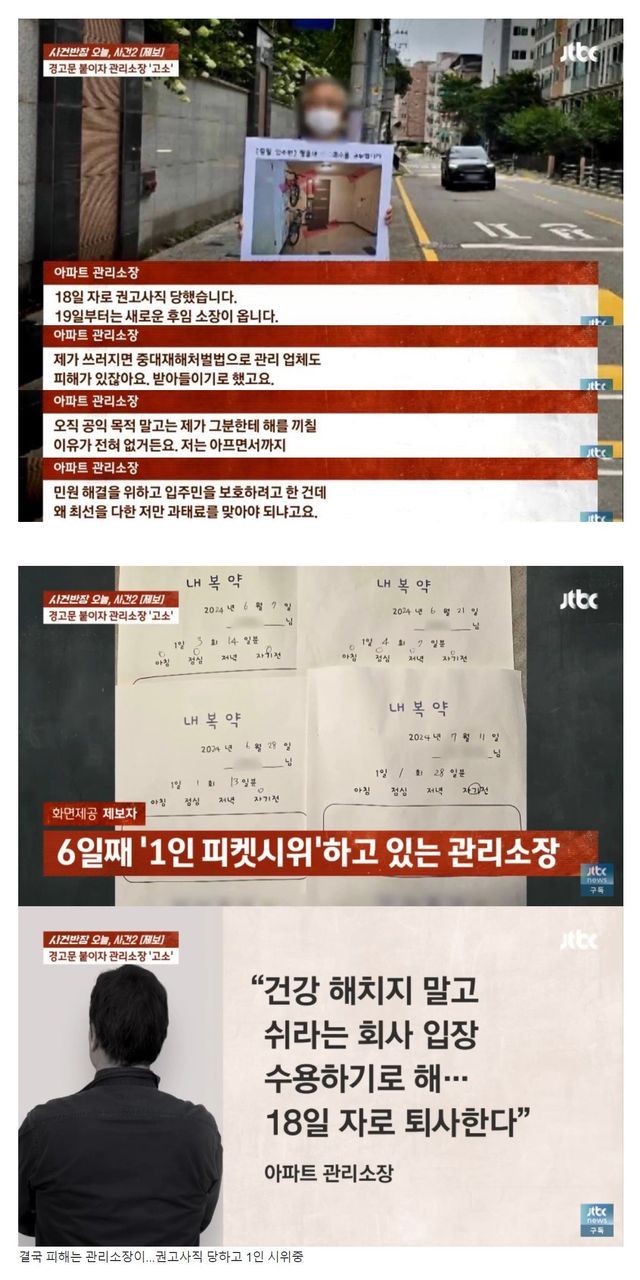 사건반장 오늘, 사건2 [제보]
경고문 붙이자 관리소장 '고소'
jtbc
아파트 관리소장
18일 자로 권고사직 당했습니다.
19일부터는 새로운 후임 소장이 옵니다.
jtbc
아파트 관리소장
제가 쓰러지면 중대재해처벌법으로 관리 업체도
피해가 있잖아요. 받아들이기로 했고요.
jtbc
아파트 관리소장
오직 공익 목적 말고는 제가 그분한테 해를 끼칠
이유가 전혀 없거든요. 저는 아프면서까지
jtbc
아파트 관리소장
민원 해결을 위하고 입주민을 보호하려고 한 건데
왜 최선을 다한 저만 과태료를 맞아야 되냐고요.
jtbc
사건반장 오늘, 사건2 [제보]
경고문 붙이자 관리소장 '고소'
jtbc
내 복 약
2024년 6월 7일
님
1일 3회 14일분
아침 점심 저녁 자기전
내 복 약
2024년 6월 21일
님
1일 4회 7일분
아침 점심 저녁 자기전
내 복 약
2024년 6월 28일
님
1일 1회 13일분
아침 점심 저녁 자기전
내 복 약
2024년 7월 11일
님
1일 1회 28일분
아침 점심 저녁 자기전
화면제공 제보자
6일째 '1인 피켓시위'하고 있는 관리소장
jtbc
news
구독
사건반장 오늘, 사건2 [제보]
경고문 붙이자 관리소장 '고소'
jtbc
“건강 해치지 말고
쉬라는 회사 입장
수용하기로 해…
18일 자로 퇴사한다”
아파트 관리소장
jtbc
news
구독
결국 피해는 관리소장이...권고사직 당하고 1인 시위중